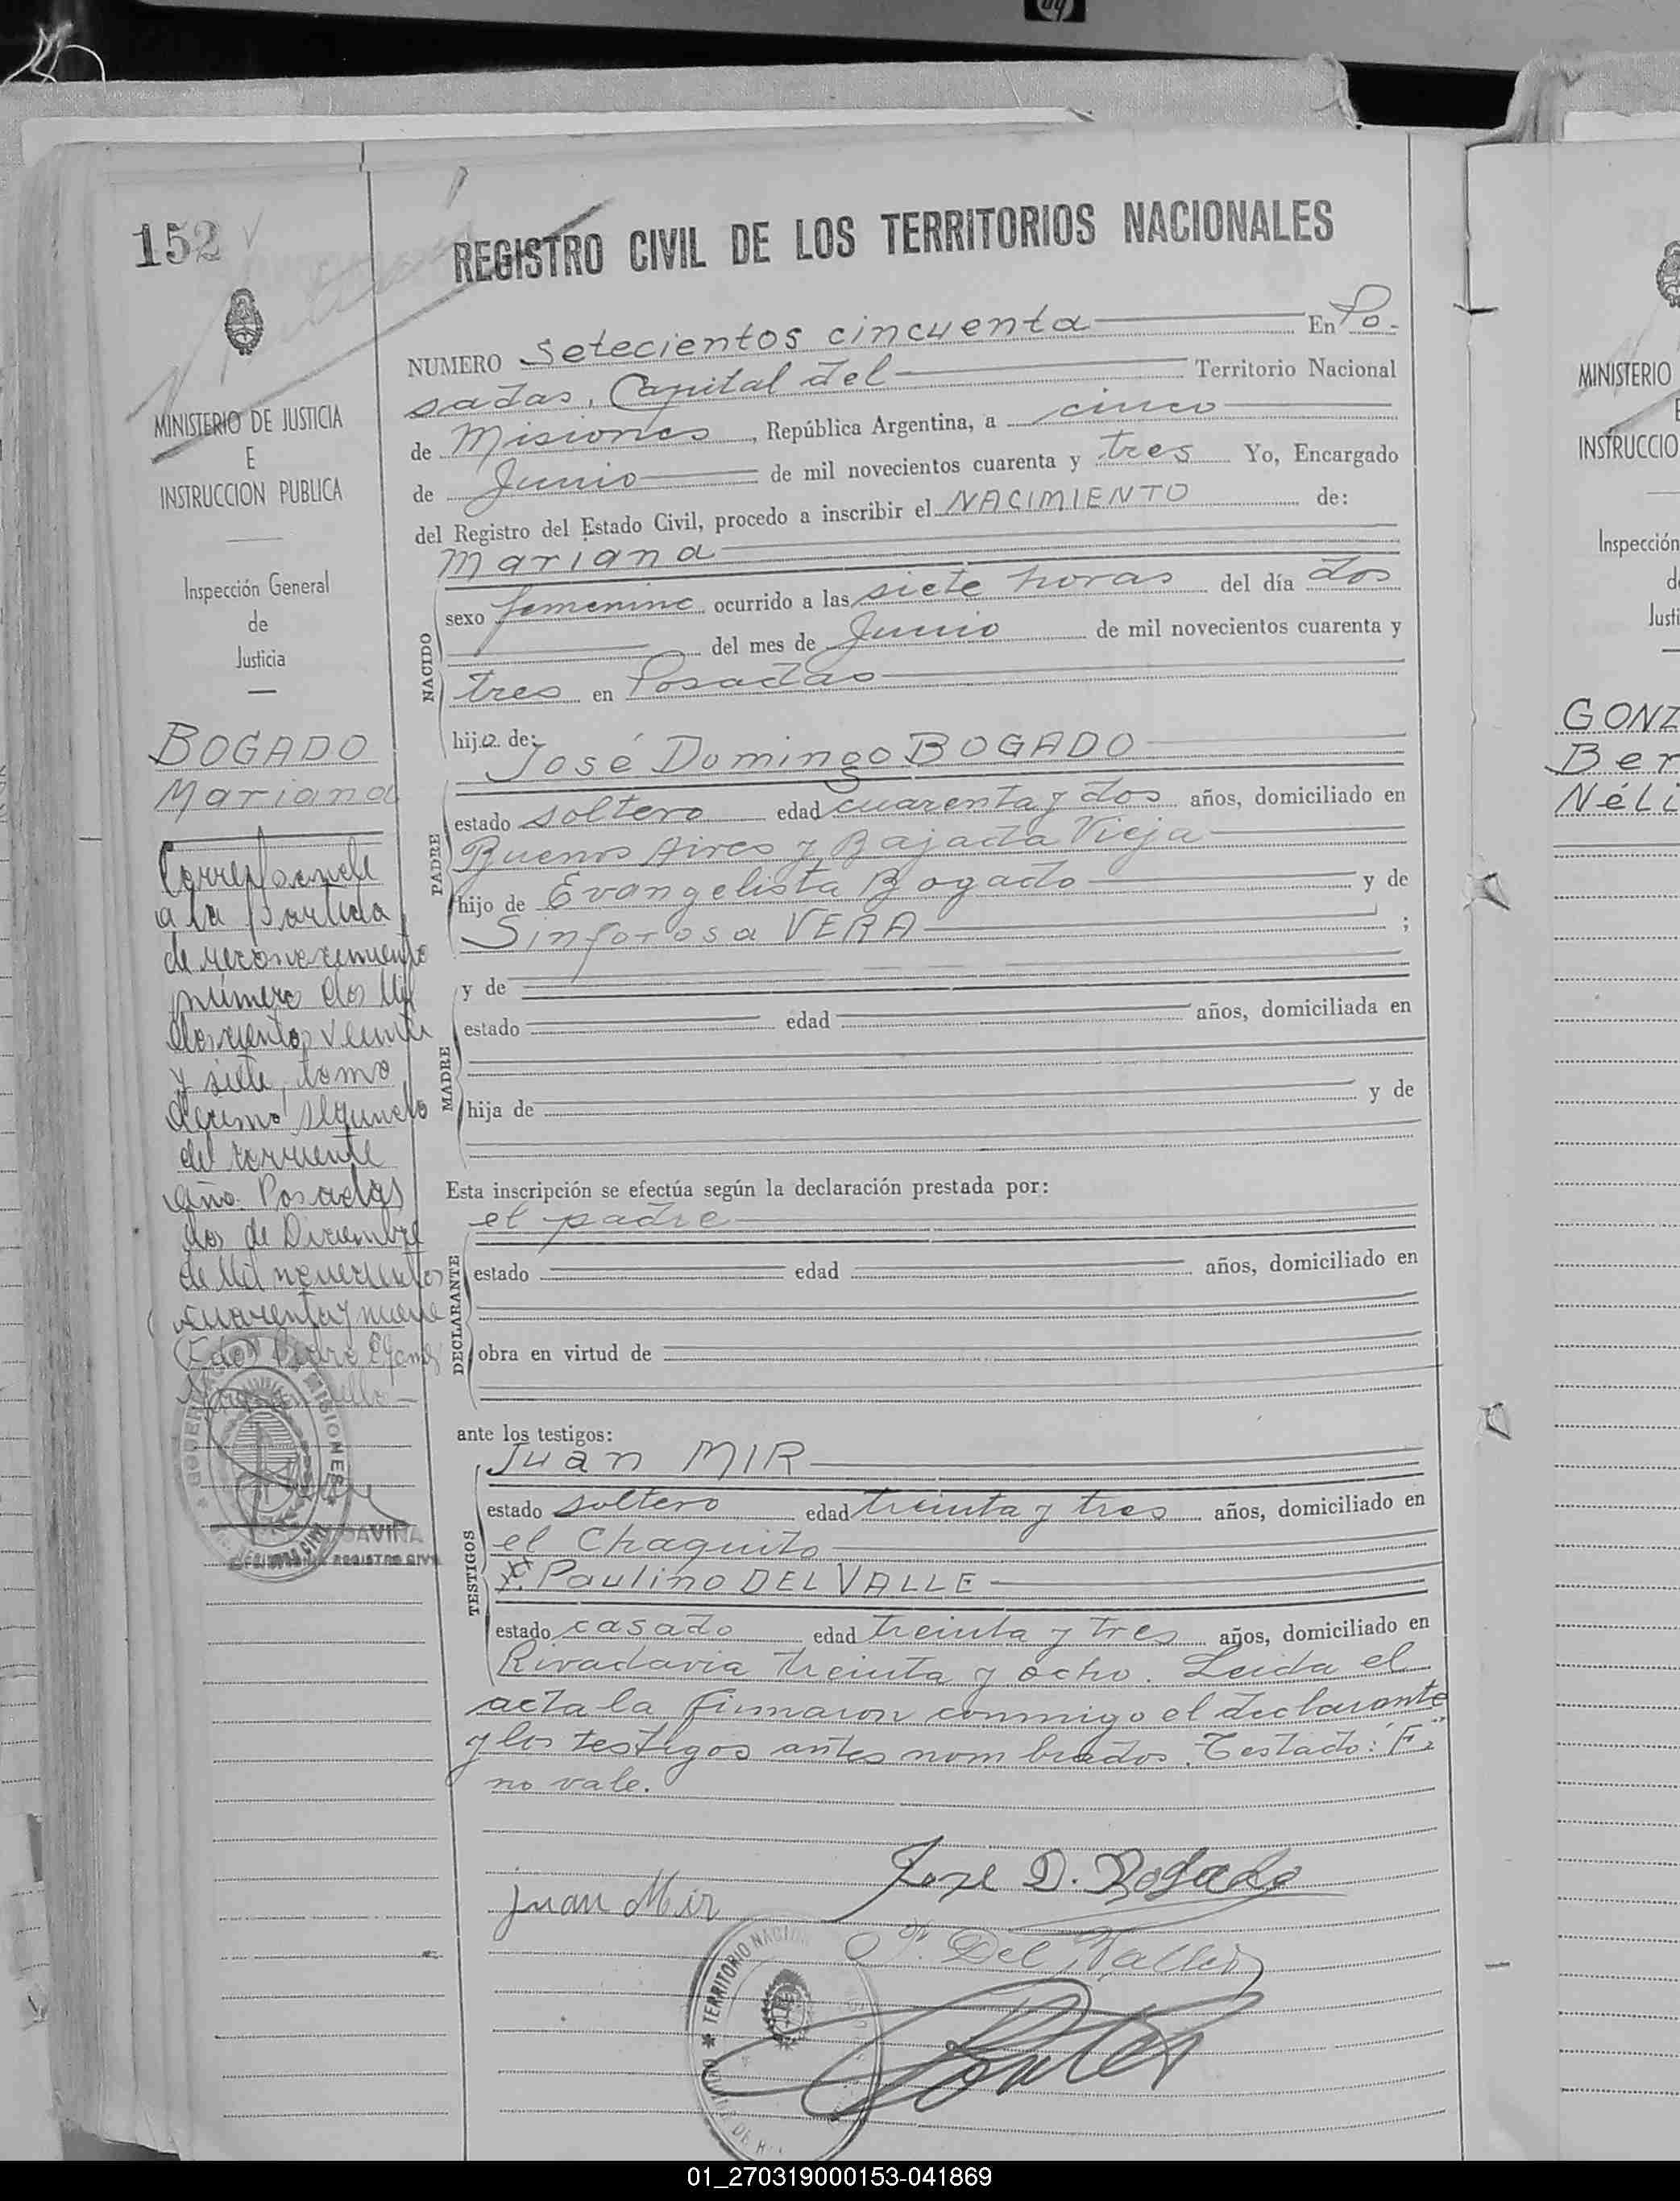 hp
152
REGISTRO CIVIL DE LOS TERRITORIOS NACIONALES
MINISTERIO DE JUSTICIA
E
INSTRUCCION PUBLICA
Inspección General
de
Justicia
BOGADO
Mariana
Corresponde
a la partida
de reconocimiento
número dos Mil
doscientos veinti
y siete, tomo
décimo segundo
del corriente
año. Posadas
dos de Diciembre
de Mil novecientos
cuarenta y nueve
(Fdo) Pedro
NUMERO Setecientos cincuenta En Po-
sadas, Capital del Territorio Nacional
de Misiones, República Argentina, a cinco
de Junio de mil novecientos cuarenta y tres Yo, Encargado
del Registro del Estado Civil, procedo a inscribir el NACIMIENTO de:
Mariana
NACIDO
sexo femenino ocurrido a las siete horas del día dos
del mes de Junio de mil novecientos cuarenta y
tres en Posadas
hija de:
José Domingo BOGADO
PADRE
estado soltero edad cuarenta y dos años, domiciliado en
Buenos Aires y Bajada Vieja
hijo de Evangelista Bogado y de
Sinforosa VERA ;
MADRE
y de
estado edad años, domiciliada en
hija de y de
Esta inscripción se efectúa según la declaración prestada por:
el padre
DECLARANTE
estado edad años, domiciliado en
obra en virtud de
ante los testigos:
Juan MIR
TESTIGOS
estado soltero edad treinta y tres años, domiciliado en
el Chaquito
F. Paulino DEL VALLE
estado casado edad treinta y tres años, domiciliado en
Rivadavia treinta y ocho. Leida el
acta la firmaron conmigo el declarante
y los testigos antes nombrados. Testado: "F."
no vale.
Jose D. Bogado
Juan Mir
P. Del Valle
TERRITORIO NACIO
MISIONES
REGISTRO CIVIL
MINISTERIO
INSTRUCCIO
Inspección
d
Justi
GONZ
Ber
Néli
01_270319000153-041869